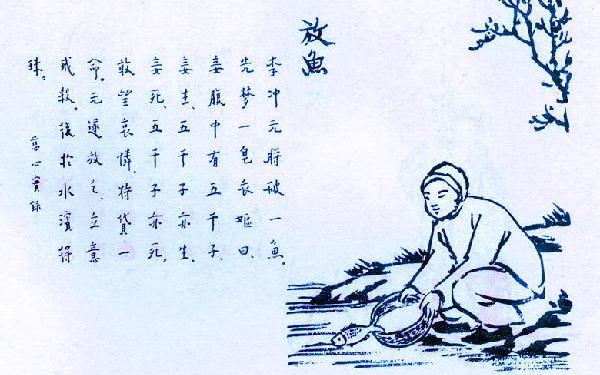 放魚
李冲元將破一魚。
先夢一皂衣嫗曰、
妾腹中有五千子、
妾生、五千子亦生、
妾死、五千子亦死。
敢望哀憐、特貸一
命。元遂放之、立意
戒殺。後於水濱得
珠。
慈心實錄